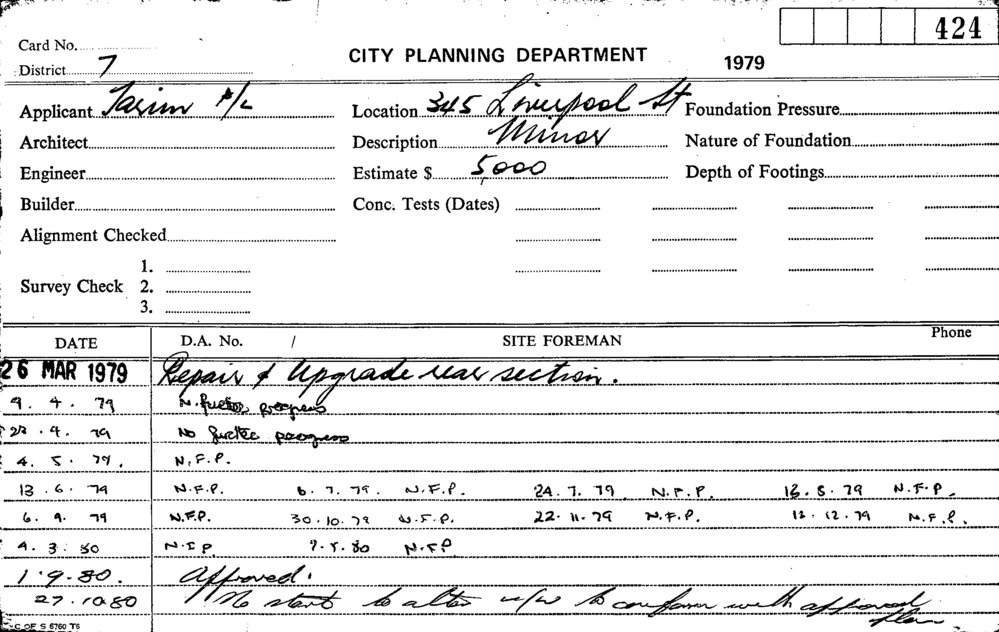 424
Card No.
CITY PLANNING DEPARTMENT 1979
District 7
Applicant Tarim P/L Location 345 Liverpool St Foundation Pressure
Architect Description Minor Nature of Foundation
Engineer Estimate $ 5,000 Depth of Footings
Builder Conc. Tests (Dates)
Alignment Checked
1.
Survey Check 2.
3.
DATE D.A. No. / SITE FOREMAN Phone
26 MAR 1979 Repair & Upgrade rear section.
9. 4. 79 N. further progress
23. 4. 79 No further progress
4. 5. 79. N.F.P.
13. 6. 79 N.F.P. 6. 7. 79. N.F.P. 24. 7. 79 N.F.P. 79 N.F.P.
6. 9. 79 N.F.P. 30. 10. 79 N.F.P. 22. 11. 79 N.F.P. 12. 79 N.F.P.
4. 3. 80 80 N.F.P
1. 9. 80. Approved.
27. 10 80 No start to alter to conform with approved
plan
C OF S 6760 T6